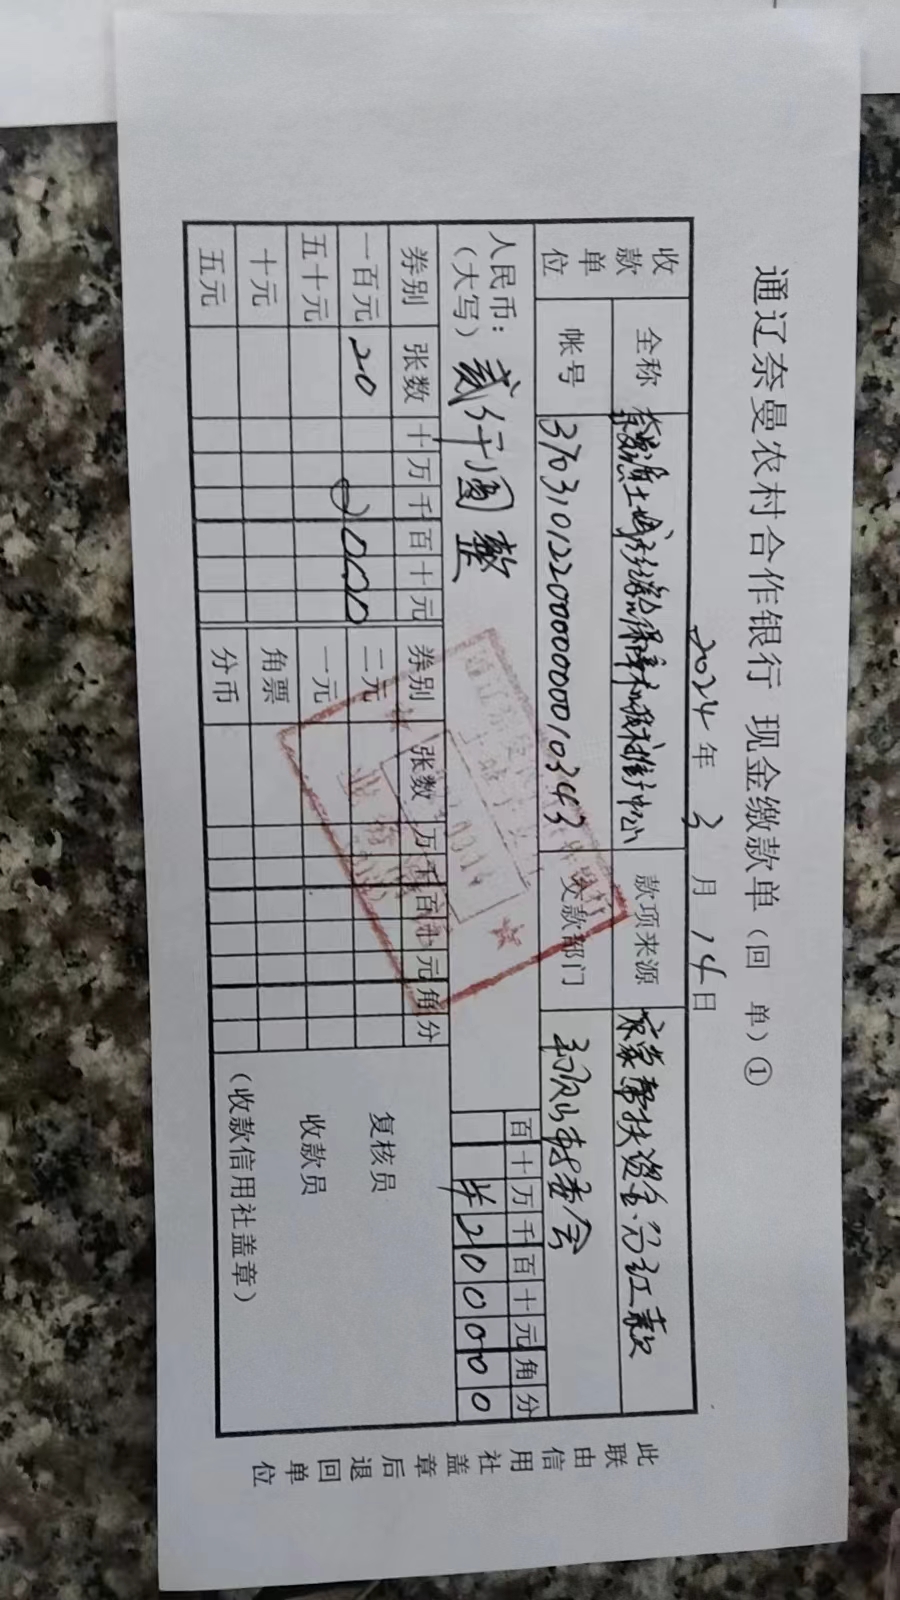 通辽奈曼农村合作银行 现金缴款单（回 单）①
2024年 3月 14日
收款单位 全称 款项来源 扶资金分红款
帐号 37031012200000000010343 交款部门 村委会
人民币：（大写） 贰仟圆整 百十万千百十元角分
¥200000
券别 张数 十万千百十元 券别 张数 万千百十元角分
一百元 20 2000 二元 复核员
五十元 一元 收款员
十元 角票
五元 分币 （收款信用社盖章）
此联由信用社盖章后退回单位